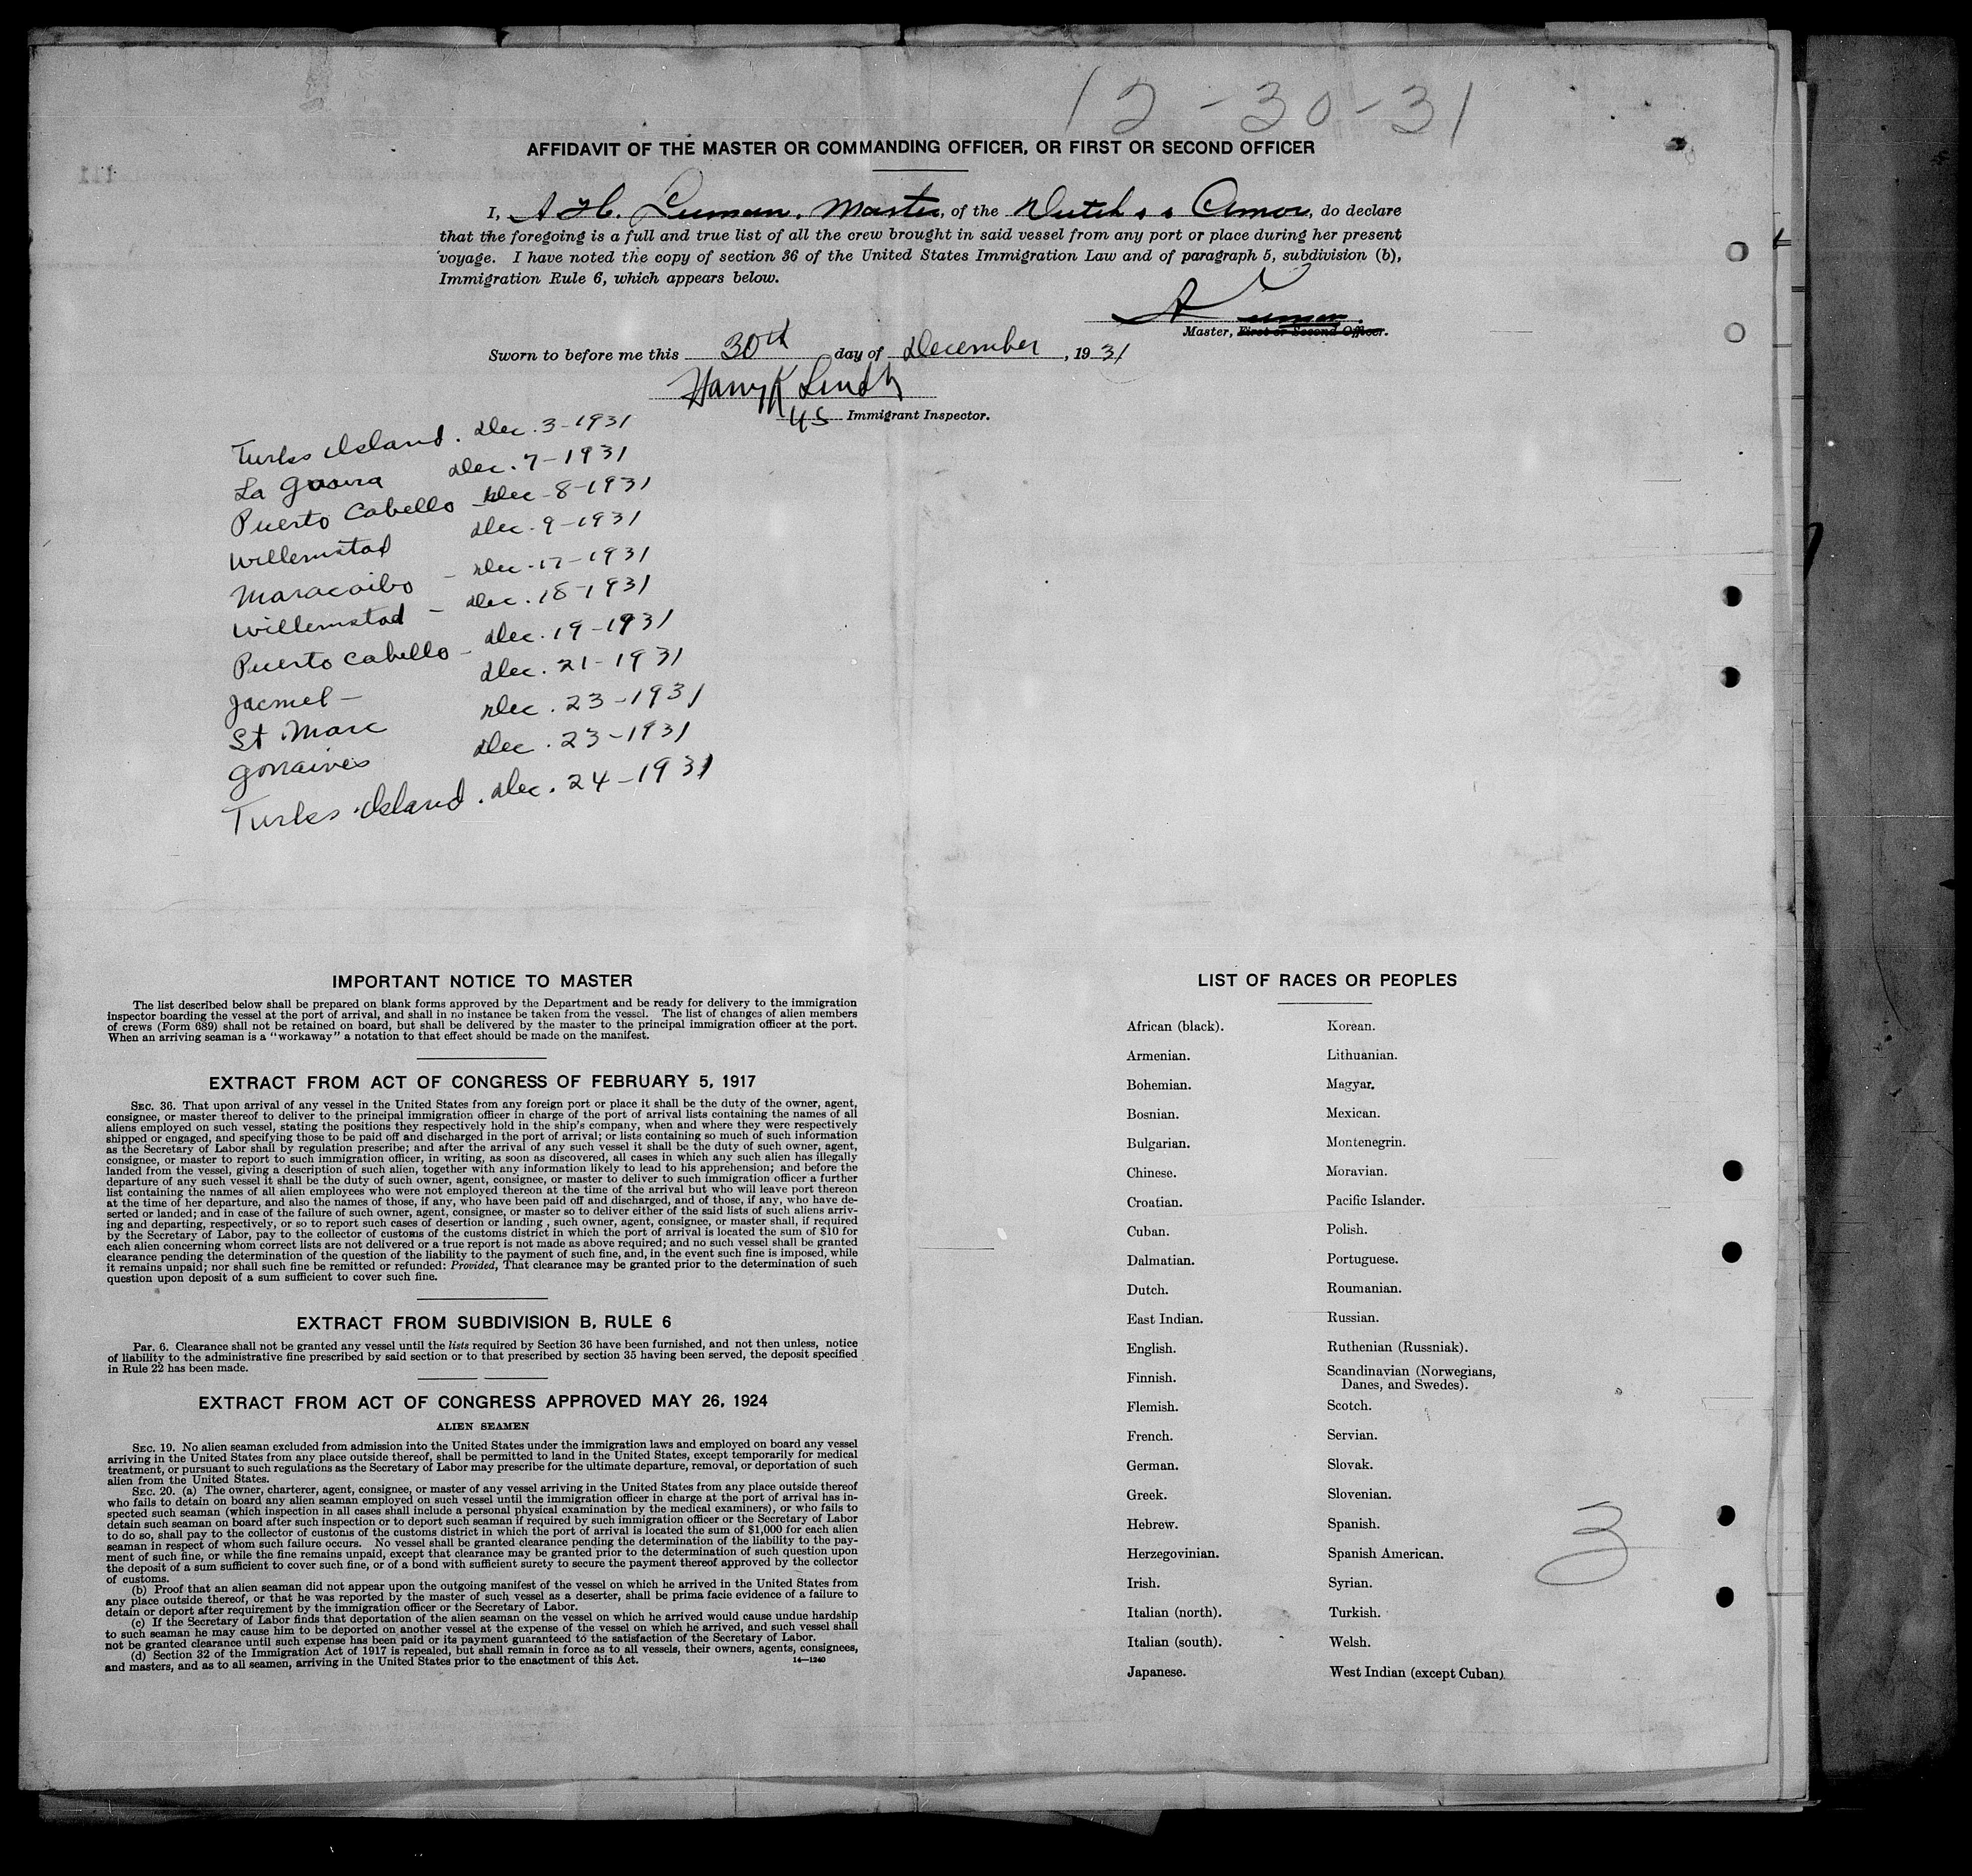 12-30-31
AFFIDAVIT OF THE MASTER OR COMMANDING OFFICER, OR FIRST OR SECOND OFFICER
I, A H. Luman. Master, of the Dutch s s Amor, do declare
that the foregoing is a full and true list of all the crew brought in said vessel from any port or place during her present
voyage. I have noted the copy of section 36 of the United States Immigration Law and of paragraph 5, subdivision (b),
Immigration Rule 6, which appears below.
A Luman.
Master, First or Second Officer.
Sworn to before me this 30th day of December, 1931
Harry K Lindh
US Immigrant Inspector.
Turks Island. Dec. 3-1931
La Guaira Dec. 7-1931
Puerto Cabello - Dec-8-1931
Willemstad Dec. 9-1931
Maracaibo - Dec-17-1931
Willemstad - Dec. 18-1931
Puerto Cabello - Dec. 19-1931
Jacmel - Dec. 21-1931
St Marc Dec. 23-1931
Gonaives Dec. 23-1931
Turks Island. Dec. 24-1931
IMPORTANT NOTICE TO MASTER
The list described below shall be prepared on blank forms approved by the Department and be ready for delivery to the immigration
inspector boarding the vessel at the port of arrival, and shall in no instance be taken from the vessel. The list of changes of alien members
of crews (Form 689) shall not be retained on board, but shall be delivered by the master to the principal immigration officer at the port.
When an arriving seaman is a "workaway" a notation to that effect should be made on the manifest.
EXTRACT FROM ACT OF CONGRESS OF FEBRUARY 5, 1917
SEC. 36. That upon arrival of any vessel in the United States from any foreign port or place it shall be the duty of the owner, agent,
consignee, or master thereof to deliver to the principal immigration officer in charge of the port of arrival lists containing the names of all
aliens employed on such vessel, stating the positions they respectively hold in the ship's company, when and where they were respectively
shipped or engaged, and specifying those to be paid off and discharged in the port of arrival; or lists containing so much of such information
as the Secretary of Labor shall by regulation prescribe; and after the arrival of any such vessel it shall be the duty of such owner, agent,
consignee, or master to report to such immigration officer, in writing, as soon as discovered, all cases in which any such alien has illegally
landed from the vessel, giving a description of such alien, together with any information likely to lead to his apprehension; and before the
departure of any such vessel it shall be the duty of such owner, agent, consignee, or master to deliver to such immigration officer a further
list containing the names of all alien employees who were not employed thereon at the time of the arrival but who will leave port thereon
at the time of her departure, and also the names of those, if any, who have been paid off and discharged, and of those, if any, who have de-
serted or landed; and in case of the failure of such owner, agent, consignee, or master so to deliver either of the said lists of such aliens arriv-
ing and departing, respectively, or so to report such cases of desertion or landing , such owner, agent, consignee, or master shall, if required
by the Secretary of Labor, pay to the collector of customs of the customs district in which the port of arrival is located the sum of $10 for
each alien concerning whom correct lists are not delivered or a true report is not made as above required; and no such vessel shall be granted
clearance pending the determination of the question of the liability to the payment of such fine, and, in the event such fine is imposed, while
it remains unpaid; nor shall such fine be remitted or refunded: Provided, That clearance may be granted prior to the determination of such
question upon deposit of a sum sufficient to cover such fine.
EXTRACT FROM SUBDIVISION B, RULE 6
Par. 6. Clearance shall not be granted any vessel until the lists required by Section 36 have been furnished, and not then unless, notice
of liability to the administrative fine prescribed by said section or to that prescribed by section 35 having been served, the deposit specified
in Rule 22 has been made.
EXTRACT FROM ACT OF CONGRESS APPROVED MAY 26, 1924
ALIEN SEAMEN
SEC. 19. No alien seaman excluded from admission into the United States under the immigration laws and employed on board any vessel
arriving in the United States from any place outside thereof, shall be permitted to land in the United States, except temporarily for medical
treatment, or pursuant to such regulations as the Secretary of Labor may prescribe for the ultimate departure, removal, or deportation of such
alien from the United States.
SEC. 20. (a) The owner, charterer, agent, consignee, or master of any vessel arriving in the United States from any place outside thereof
who fails to detain on board any alien seaman employed on such vessel until the immigration officer in charge at the port of arrival has in-
spected such seaman (which inspection in all cases shall include a personal physical examination by the medical examiners), or who fails to
detain such seaman on board after such inspection or to deport such seaman if required by such immigration officer or the Secretary of Labor
to do so, shall pay to the collector of customs of the customs district in which the port of arrival is located the sum of $1,000 for each alien
seaman in respect of whom such failure occurs. No vessel shall be granted clearance pending the determination of the liability to the pay-
ment of such fine, or while the fine remains unpaid, except that clearance may be granted prior to the determination of such question upon
the deposit of a sum sufficient to cover such fine, or of a bond with sufficient surety to secure the payment thereof approved by the collector
of customs.
(b) Proof that an alien seaman did not appear upon the outgoing manifest of the vessel on which he arrived in the United States from
any place outside thereof, or that he was reported by the master of such vessel as a deserter, shall be prima facie evidence of a failure to
detain or deport after requirement by the immigration officer or the Secretary of Labor.
(c) If the Secretary of Labor finds that deportation of the alien seaman on the vessel on which he arrived would cause undue hardship
to such seaman he may cause him to be deported on another vessel at the expense of the vessel on which he arrived, and such vessel shall
not be granted clearance until such expense has been paid or its payment guaranteed to the satisfaction of the Secretary of Labor.
(d) Section 32 of the Immigration Act of 1917 is repealed, but shall remain in force as to all vessels, their owners, agents, consignees,
and masters, and as to all seamen, arriving in the United States prior to the enactment of this Act. 14—1240
LIST OF RACES OR PEOPLES
African (black). Korean.
Armenian. Lithuanian.
Bohemian. Magyar.
Bosnian. Mexican.
Bulgarian. Montenegrin.
Chinese. Moravian.
Croatian. Pacific Islander.
Cuban. Polish.
Dalmatian. Portuguese.
Dutch. Roumanian.
East Indian. Russian.
English. Ruthenian (Russniak).
Finnish. Scandinavian (Norwegians,
Danes, and Swedes).
Flemish. Scotch.
French. Servian.
German. Slovak.
Greek. Slovenian.
Hebrew. Spanish.
Herzegovinian. Spanish American.
Irish. Syrian.
Italian (north). Turkish.
Italian (south). Welsh.
Japanese. West Indian (except Cuban).
3